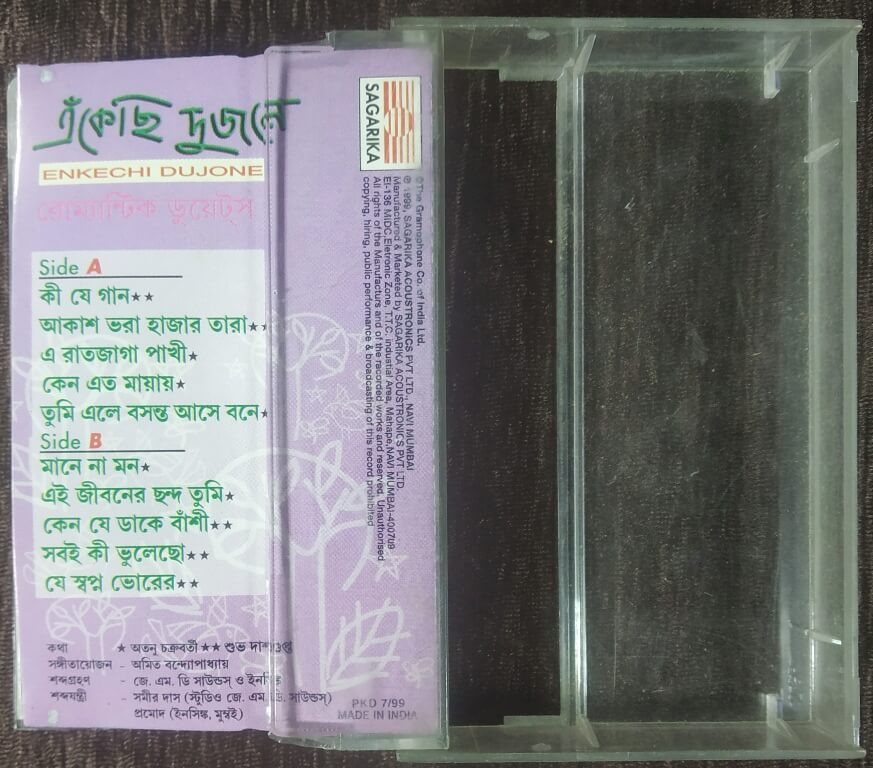 এঁকেছি দুজনে
ENKECHI DUJONE
রোম্যান্টিক ডুয়েট্‌স
Side A
কী যে গান★★
আকাশ ভরা হাজার তারা★★
এ রাতজাগা পাখী★
কেন এত মায়ায়★
তুমি এলে বসন্ত আসে বনে★
Side B
মানে না মন★
এই জীবনের ছন্দ তুমি★
কেন যে ডাকে বাঁশী★★
সবই কী ভুলেছো★★
যে স্বপ্ন ভোরের★★
কথা ★ অতনু চক্রবর্তী ★★ শুভ দাশগুপ্ত
সঙ্গীতায়োজন - অমিত বন্দ্যোপাধ্যায়
শব্দগ্রহণ - জে. এম. ডি সাউন্ডস্ ও ইনসিঙ্ক
শব্দযন্ত্রী - সমীর দাস (স্টুডিও জে. এম. ডি. সাউন্ডস্)
প্রমোদ (ইনসিঙ্ক, মুম্বই)
SAGARIKA
©The Gramophone Co. of India Ltd.
℗ 1999, SAGARIKA ACOUSTRONICS PVT LTD., NAVI MUMBAI
Manufactured & Marketed by SAGARIKA ACOUSTRONICS PVT LTD.
El-136 MIDC, Eletronic Zone, T.T.C. industial Area, Mahape, NAVI MUMBAI-400709
All rights of the Manufacturs and of the recorded works and reserved. Unauthorised
copying, hiring, public performance & broadcasting of this record prohibited
PKD 7/99
MADE IN INDIA